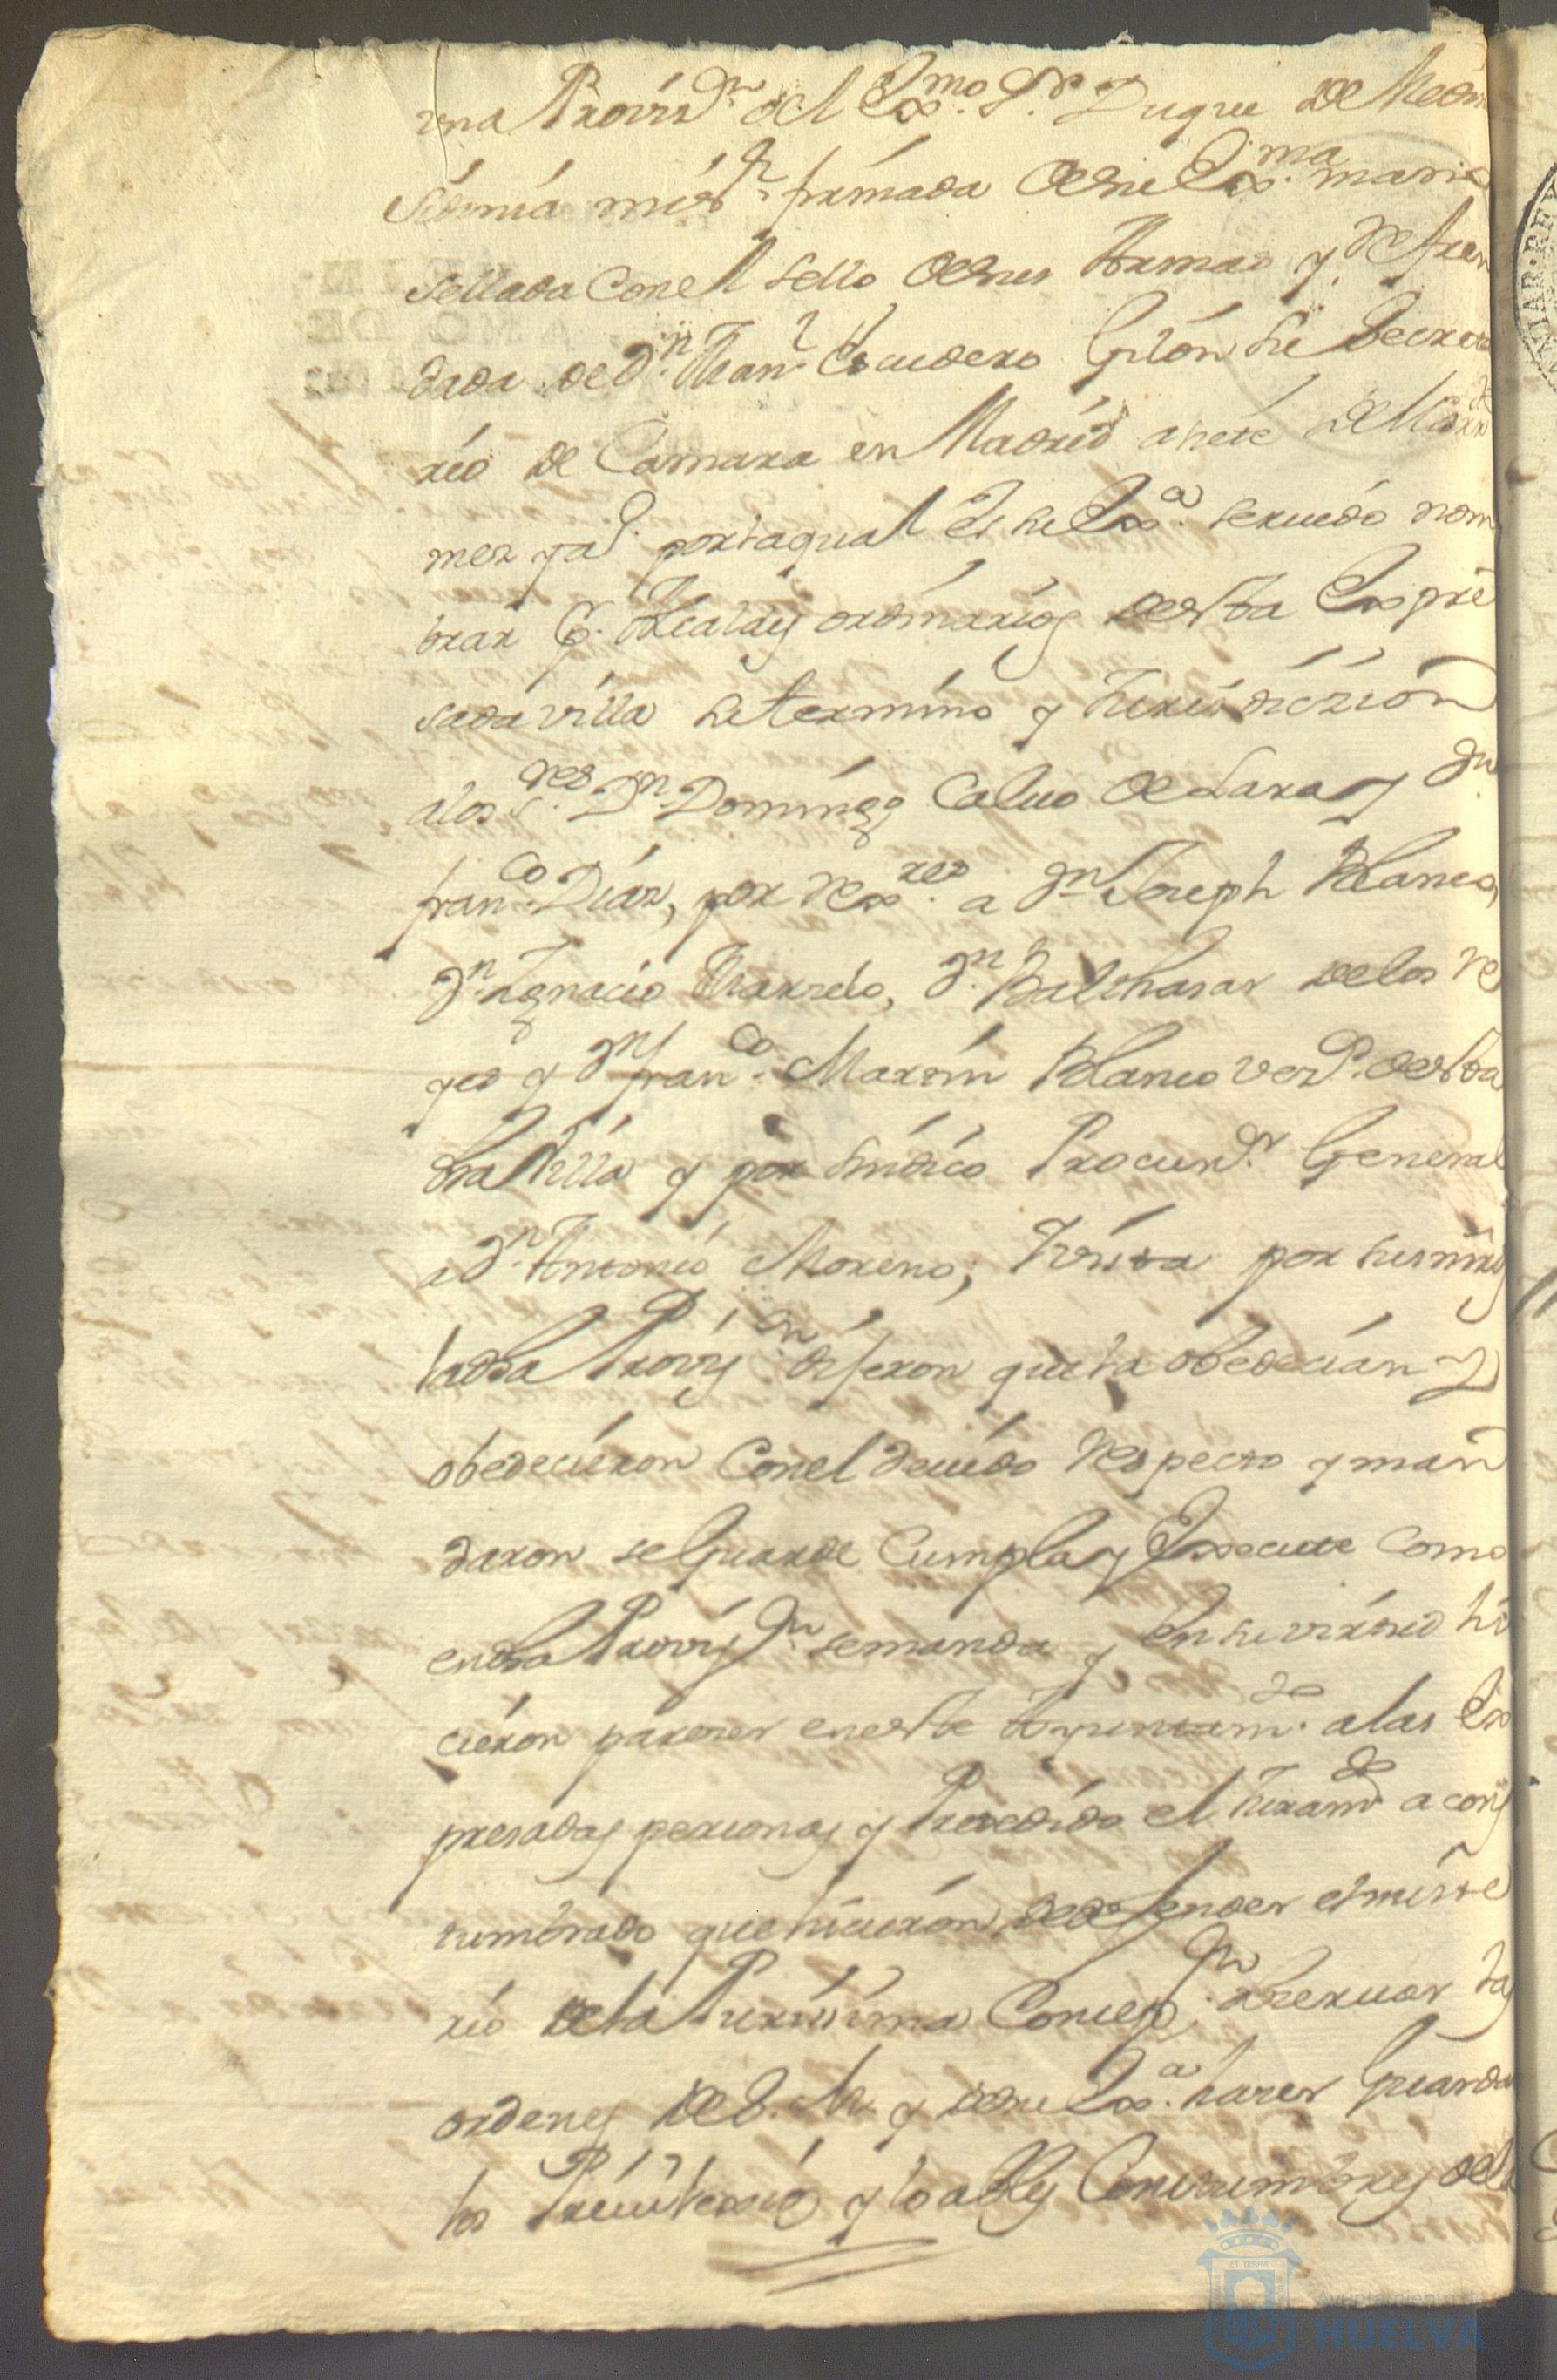 una Provis.on del Ex.mo S.r Duque de Medin
sidonia mi s.r firmada de su Ex.ma mano
sellada con el sello de sus Armas y refren
dada de D.n Man.l Escudero Gilón su Secreta
rio de Camara en Madrid a siete del Corr.te
mes y a.o por la qual es su Ex.a seruido nom
brar p.r Alcaldes ordinarios desta Expre
sada villa su termino y Jurisdiczion
a los S.res D.n Domingo Caluo de Lara y d.n
fran.co Diaz, por Rex.res a d.n Joseph Blanco,
d.n Ignacio Garrido, d.n Balthasar de los Re
yes y d.n fran.co Martin Blanco vez.s desta
dha Villa y por sindico Procur.dr General
a d.n Antonio Moreno; Vista por sus mrds
la dha Provis.on dixeron que la obedecian y
obedecieron con el deuido respecto y man
daron se Guarde Cumpla y Execute como
en dha Provis.on se manda y en su virtud hi
cieron parecer en este Ayuntam.to a las Ex
presadas personas y Precedido el Juram.to acos
tumbrado que hicieron de defender el miste
rio de la Purissima Concep.on obseruar las
ordenes de S. M. y de su Ex.a hacer Guardar
los Priuilexios y loables Constumbres de la
Ayuntamiento de
HUELVA